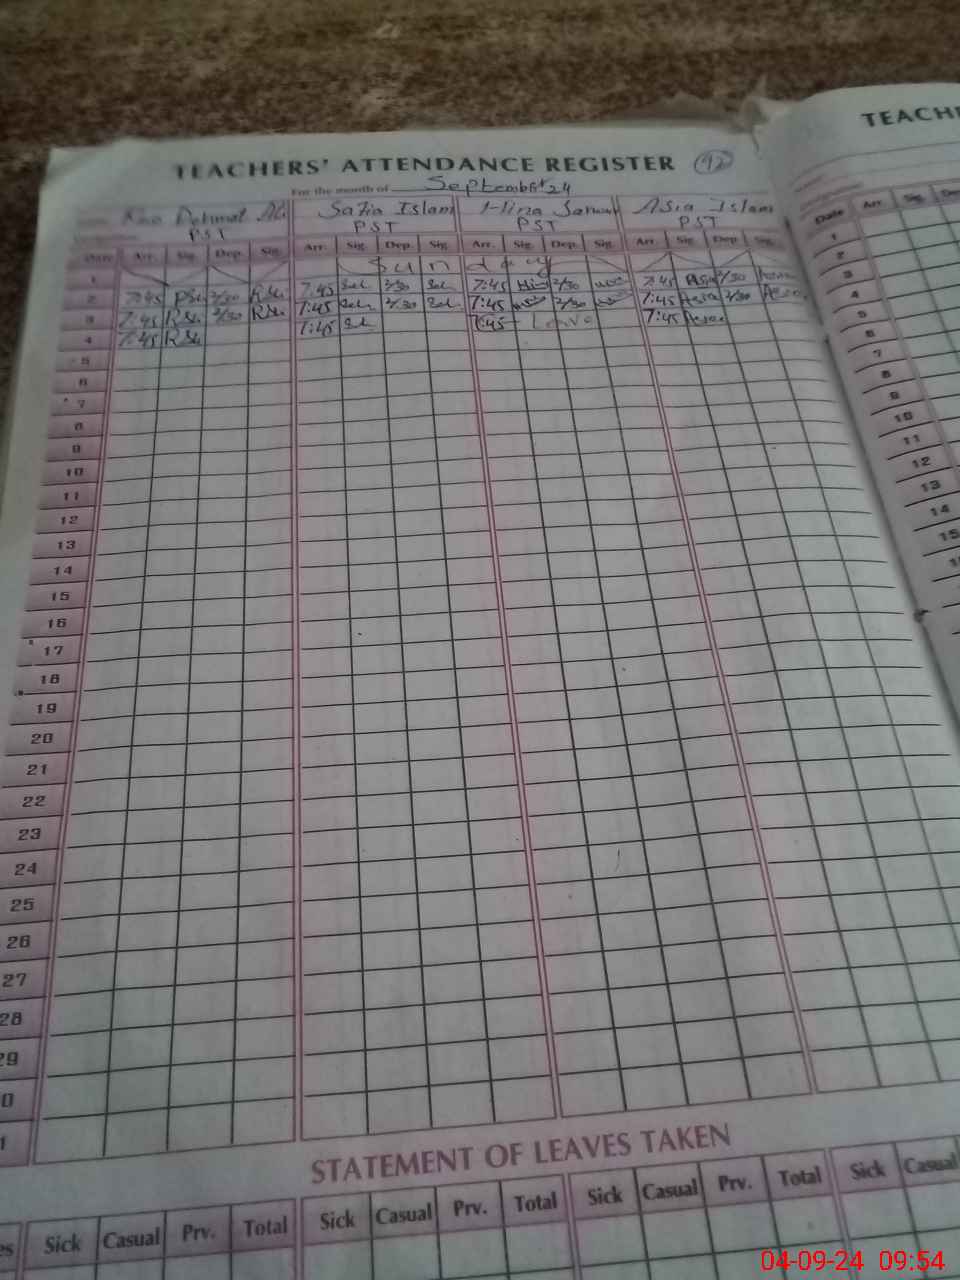 TEACHERS' ATTENDANCE REGISTER 92
For the month of September 24
Rao Rehmat Ali Safia Islam Hina Asia Islam
PST PST PST PST
Date Arr. Sig. Dep. Sig. Arr. Sig. Dep. Sig. Arr. Sig. Dep. Sig. Arr. Sig. Dep. Sig.
1 Sunday
2 7:45 2/30 7:45 2/30 7:45 2/30 7:45 Asia 2/30
3 7:45 2/30 7:45 2/30 7:45 2/30 7:45 Asia 2/30
4 7:45 7:45 7:45 Leave 7:45
5
6
7
8
9
10
11
12
13
14
15
16
17
18
19
20
21
22
23
24
25
26
27
28
29
0
1
STATEMENT OF LEAVES TAKEN
es Sick Casual Prv. Total Sick Casual Prv. Total Sick Casual Prv. Total Sick Casual
TEACH
Date Arr. Sig. De
1
2
3
4
5
6
7
8
9
10
11
12
13
14
15
04-09-24 09:54